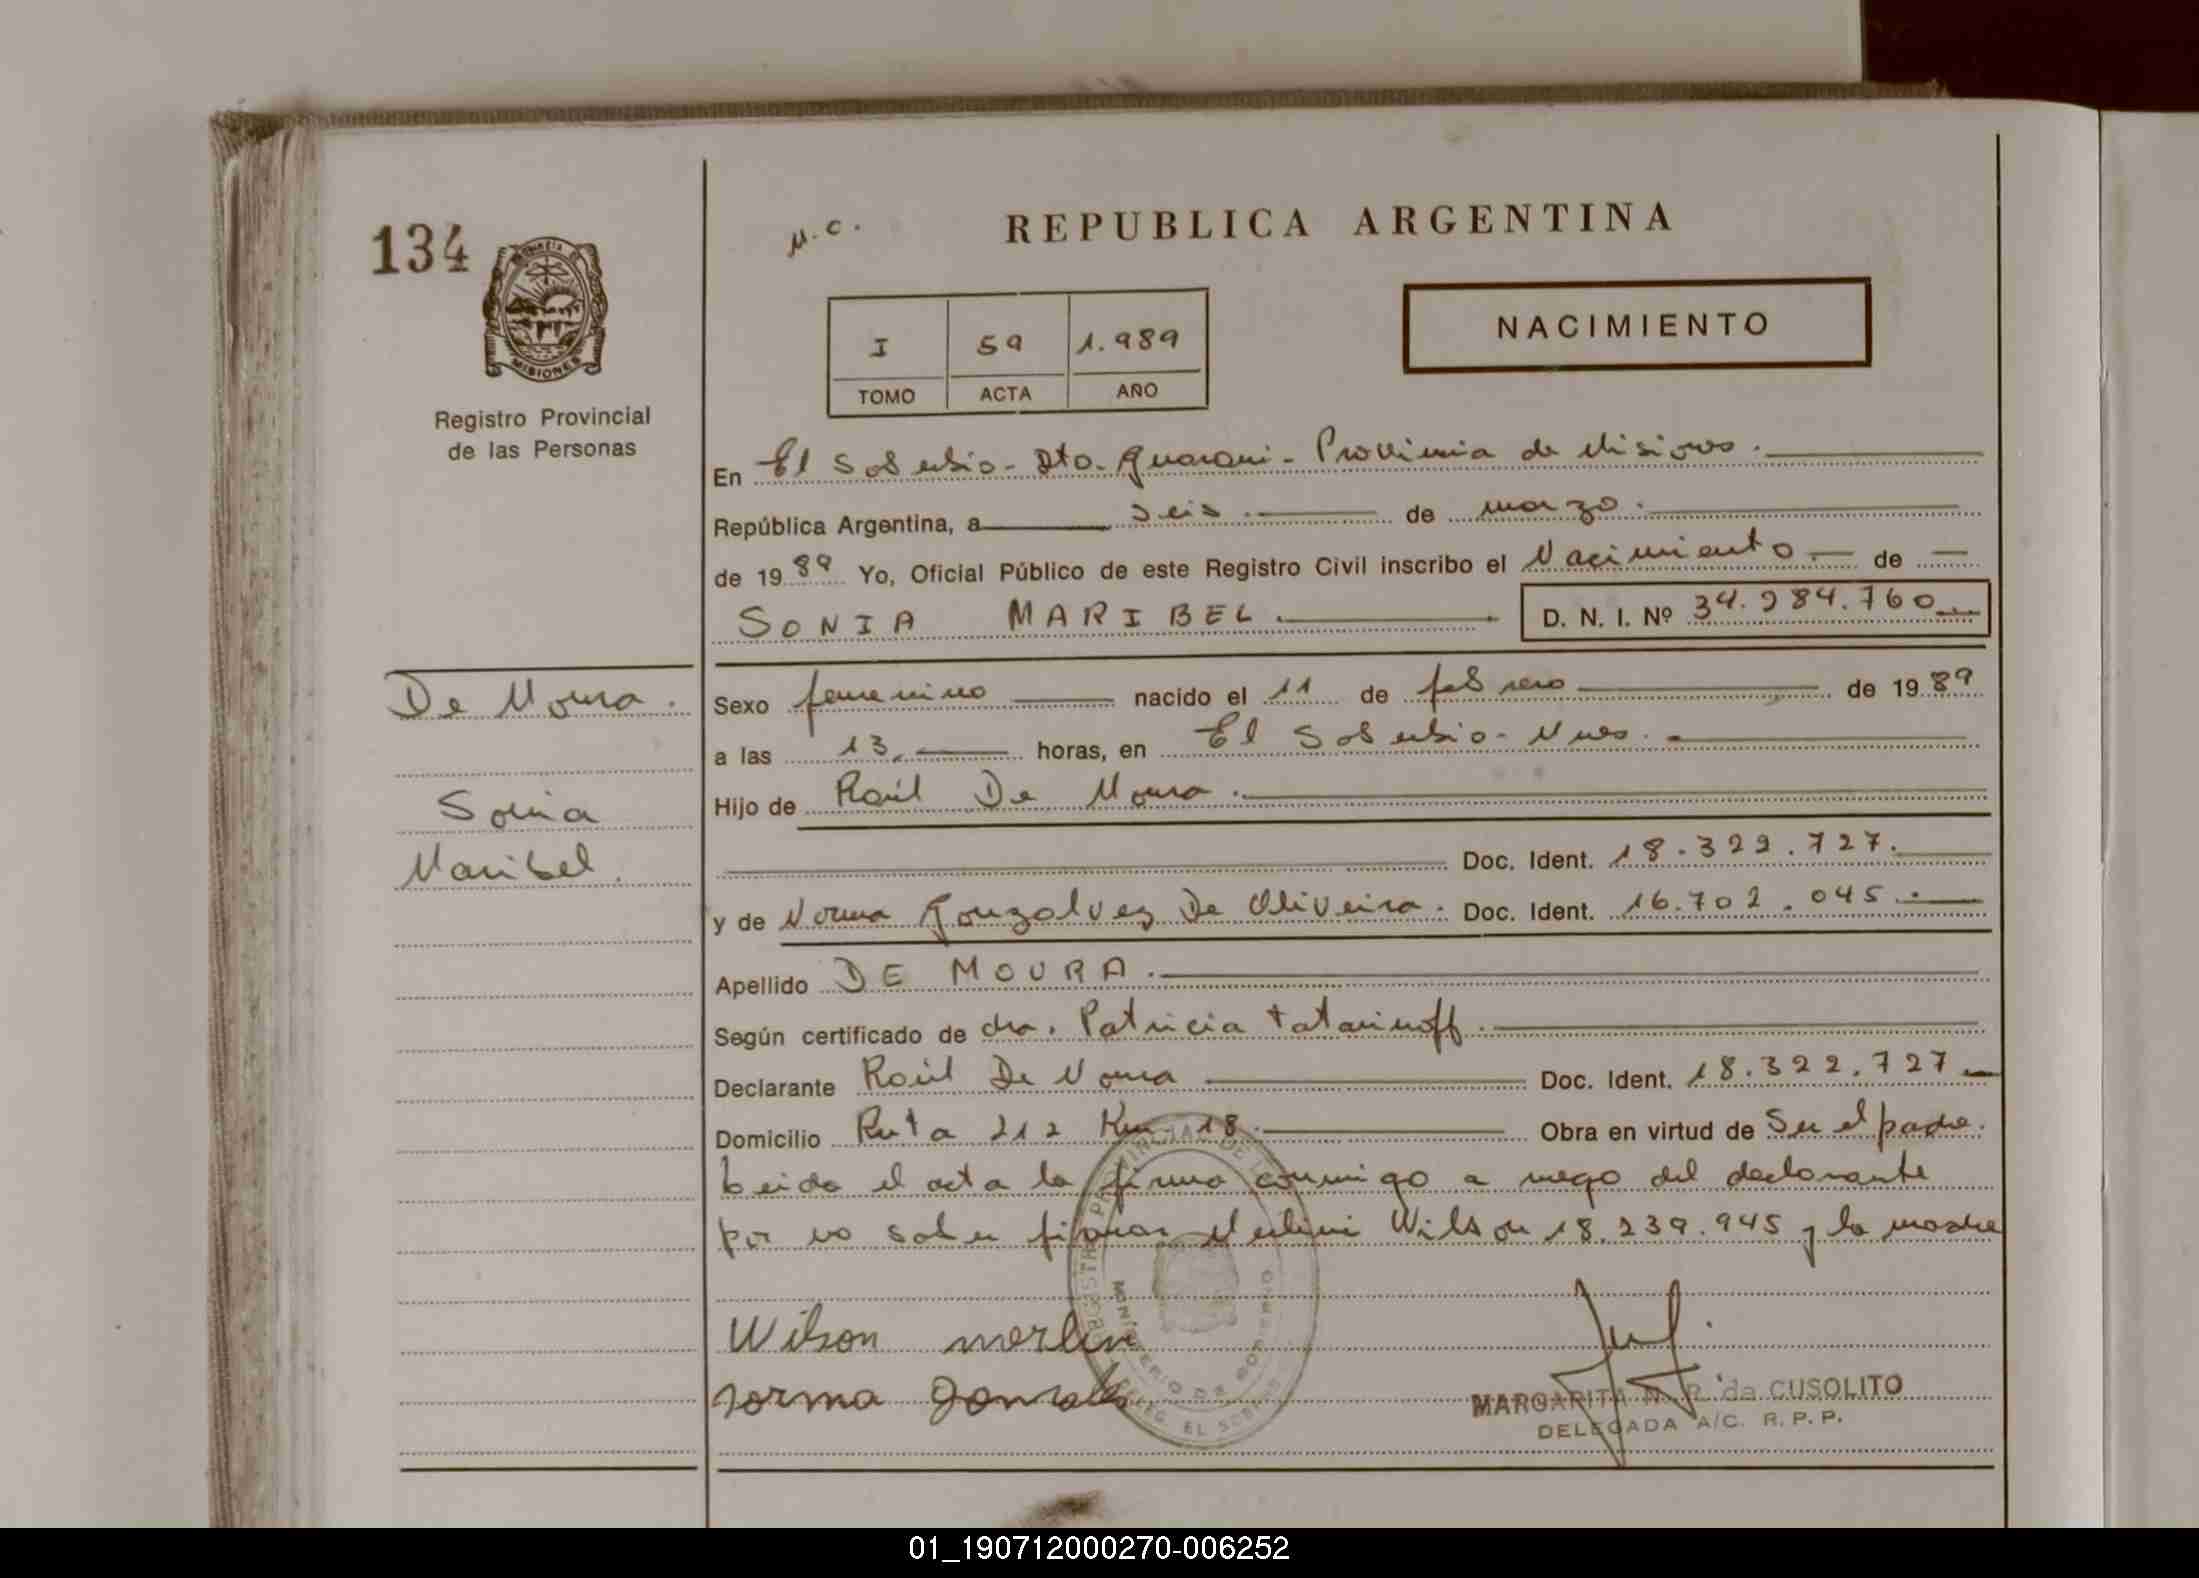 134
PROVINCIA DE
MISIONES
Registro Provincial
de las Personas
M.C.
REPUBLICA ARGENTINA
I 59 1.989
TOMO ACTA AÑO
NACIMIENTO
En El Soberbio - Dto. Guarani - Provincia de Misiones.
República Argentina, a seis de marzo.
de 1989 Yo, Oficial Público de este Registro Civil inscribo el Nacimiento de
SONIA MARIBEL. D. N. I. Nº 34.284.760
De Moura.
Sonia
Maribel.
Sexo femenino nacido el 11 de febrero de 1989
a las 13. horas, en El Soberbio - Mnes.
Hijo de Raúl De Moura.
Doc. Ident. 18.322.727.
y de Norma Gonzalvez De Oliveira. Doc. Ident. 16.702.045.
Apellido DE MOURA.
Según certificado de dra. Patricia Tatarinoff.
Declarante Raúl De Moura Doc. Ident. 18.322.727
Domicilio Ruta 212 Km 18. Obra en virtud de Ser el padre.
Leida el acta la firma conmigo a ruego del declarante
por no saber firmar Merlin Wilson 18.239.945 y la madre
Wilson merlin
norma Gonzalez
REGISTRO PROVINCIAL DE LAS
MINISTERIO DE GOBIERNO
DELEG. EL SOBERBIO
MARGARITA N. R. de CUSOLITO
DELEGADA A/C. R. P. P.
01_190712000270-006252